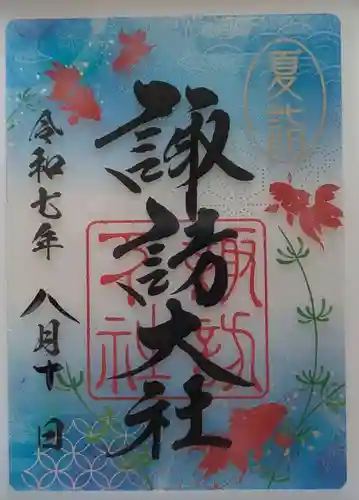 夏詣
諏訪大社
令和七年 八月十日
諏訪大社